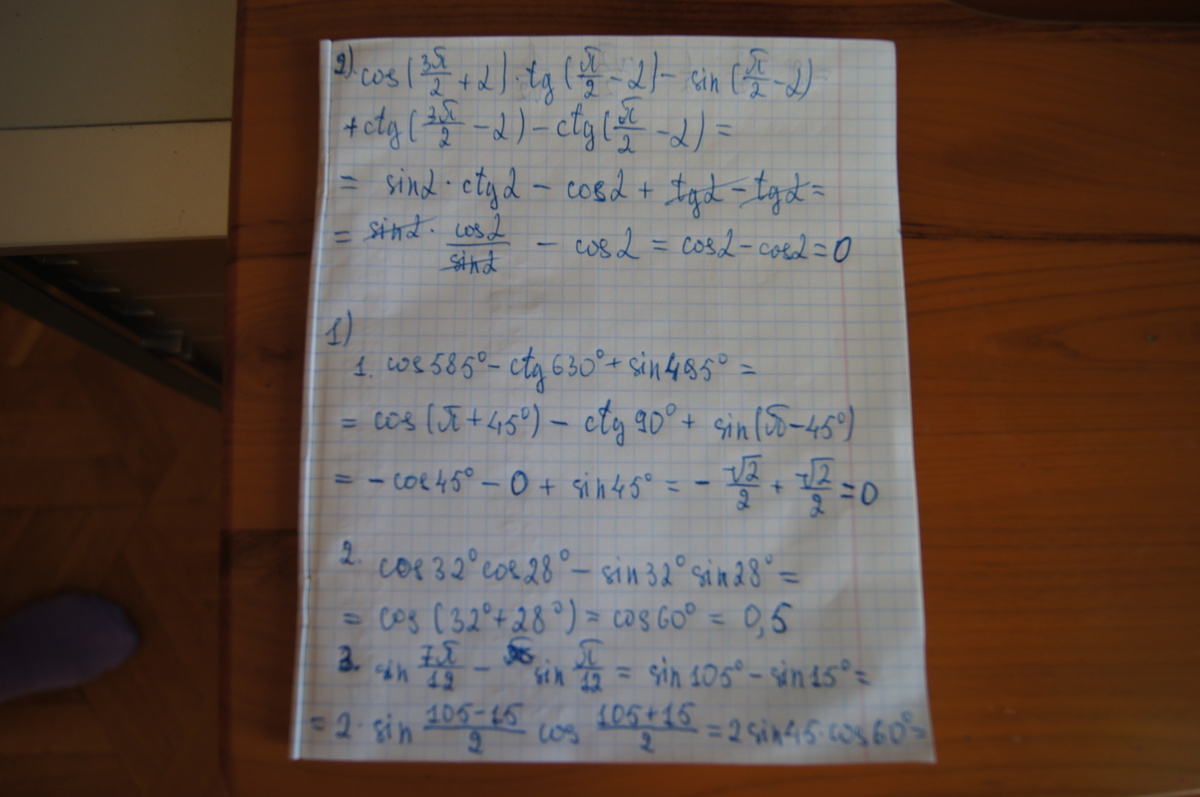 2) cos(3π/2 + 2) · tg(π/2 - 2) - sin(π/2 - 2)
+ ctg(3π/2 - 2) - ctg(π/2 - 2) =
= sin2 · ctg2 - cos2 + tg2 - tg2 =
= sin2 · cos2/sin2 - cos2 = cos2 - cos2 = 0
1)
1. cos585° - ctg630° + sin495° =
= cos(π + 45°) - ctg90° + sin(π - 45°)
= - cos45° - 0 + sin45° = - √2/2 + √2/2 = 0
2. cos32° cos28° - sin32° sin28° =
= cos(32° + 28°) = cos60° = 0,5
3. sin 7π/12 - sin π/12 = sin105° - sin15° =
= 2 · sin (105-15)/2 cos (105+15)/2 = 2sin45·cos60° =